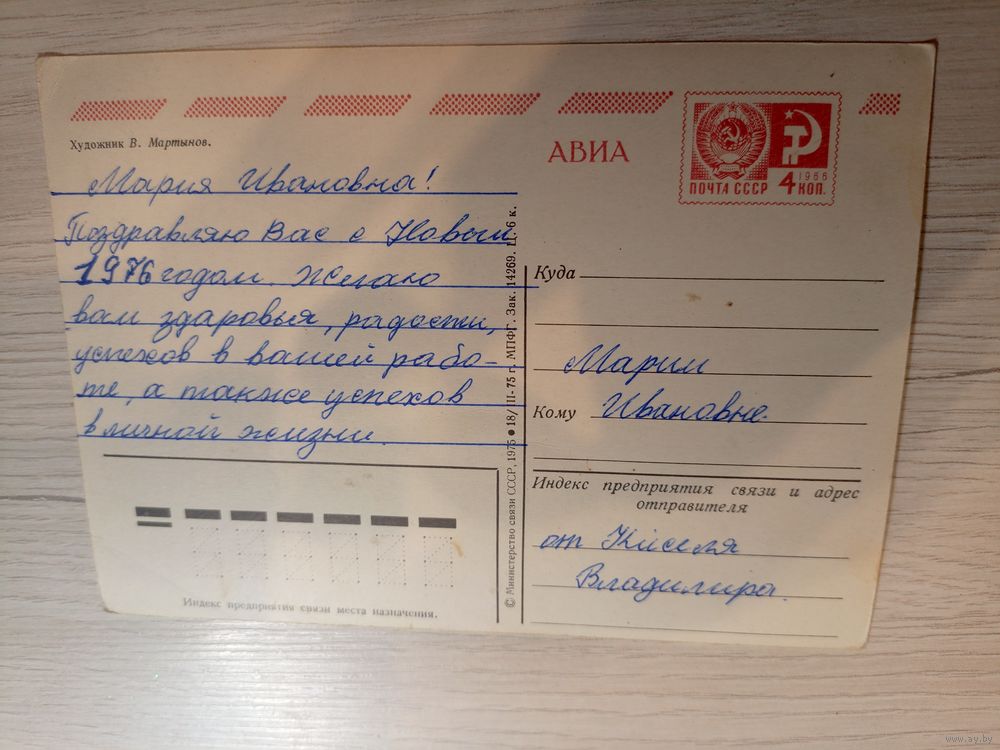 Художник В. Мартынов.
АВИА
ПОЧТА СССР
1966
4 КОП.
Мария Ивановна!
Поздравляю Вас с Новым
1976 годом. Желаю
вам здаровья, радости,
успехов в вашей рабо-
те, а также успехов
в личной жизни.
Индекс предприятия связи места назначения.
© Министерство связи СССР, 1975 ● 18/III-75 г. МПФГ. Зак. 14269. Ц. 6 к.
Куда
Марии
Кому Ивановне.
Индекс предприятия связи и адрес
отправителя
от Киселя
Владимира.
www.ay.by